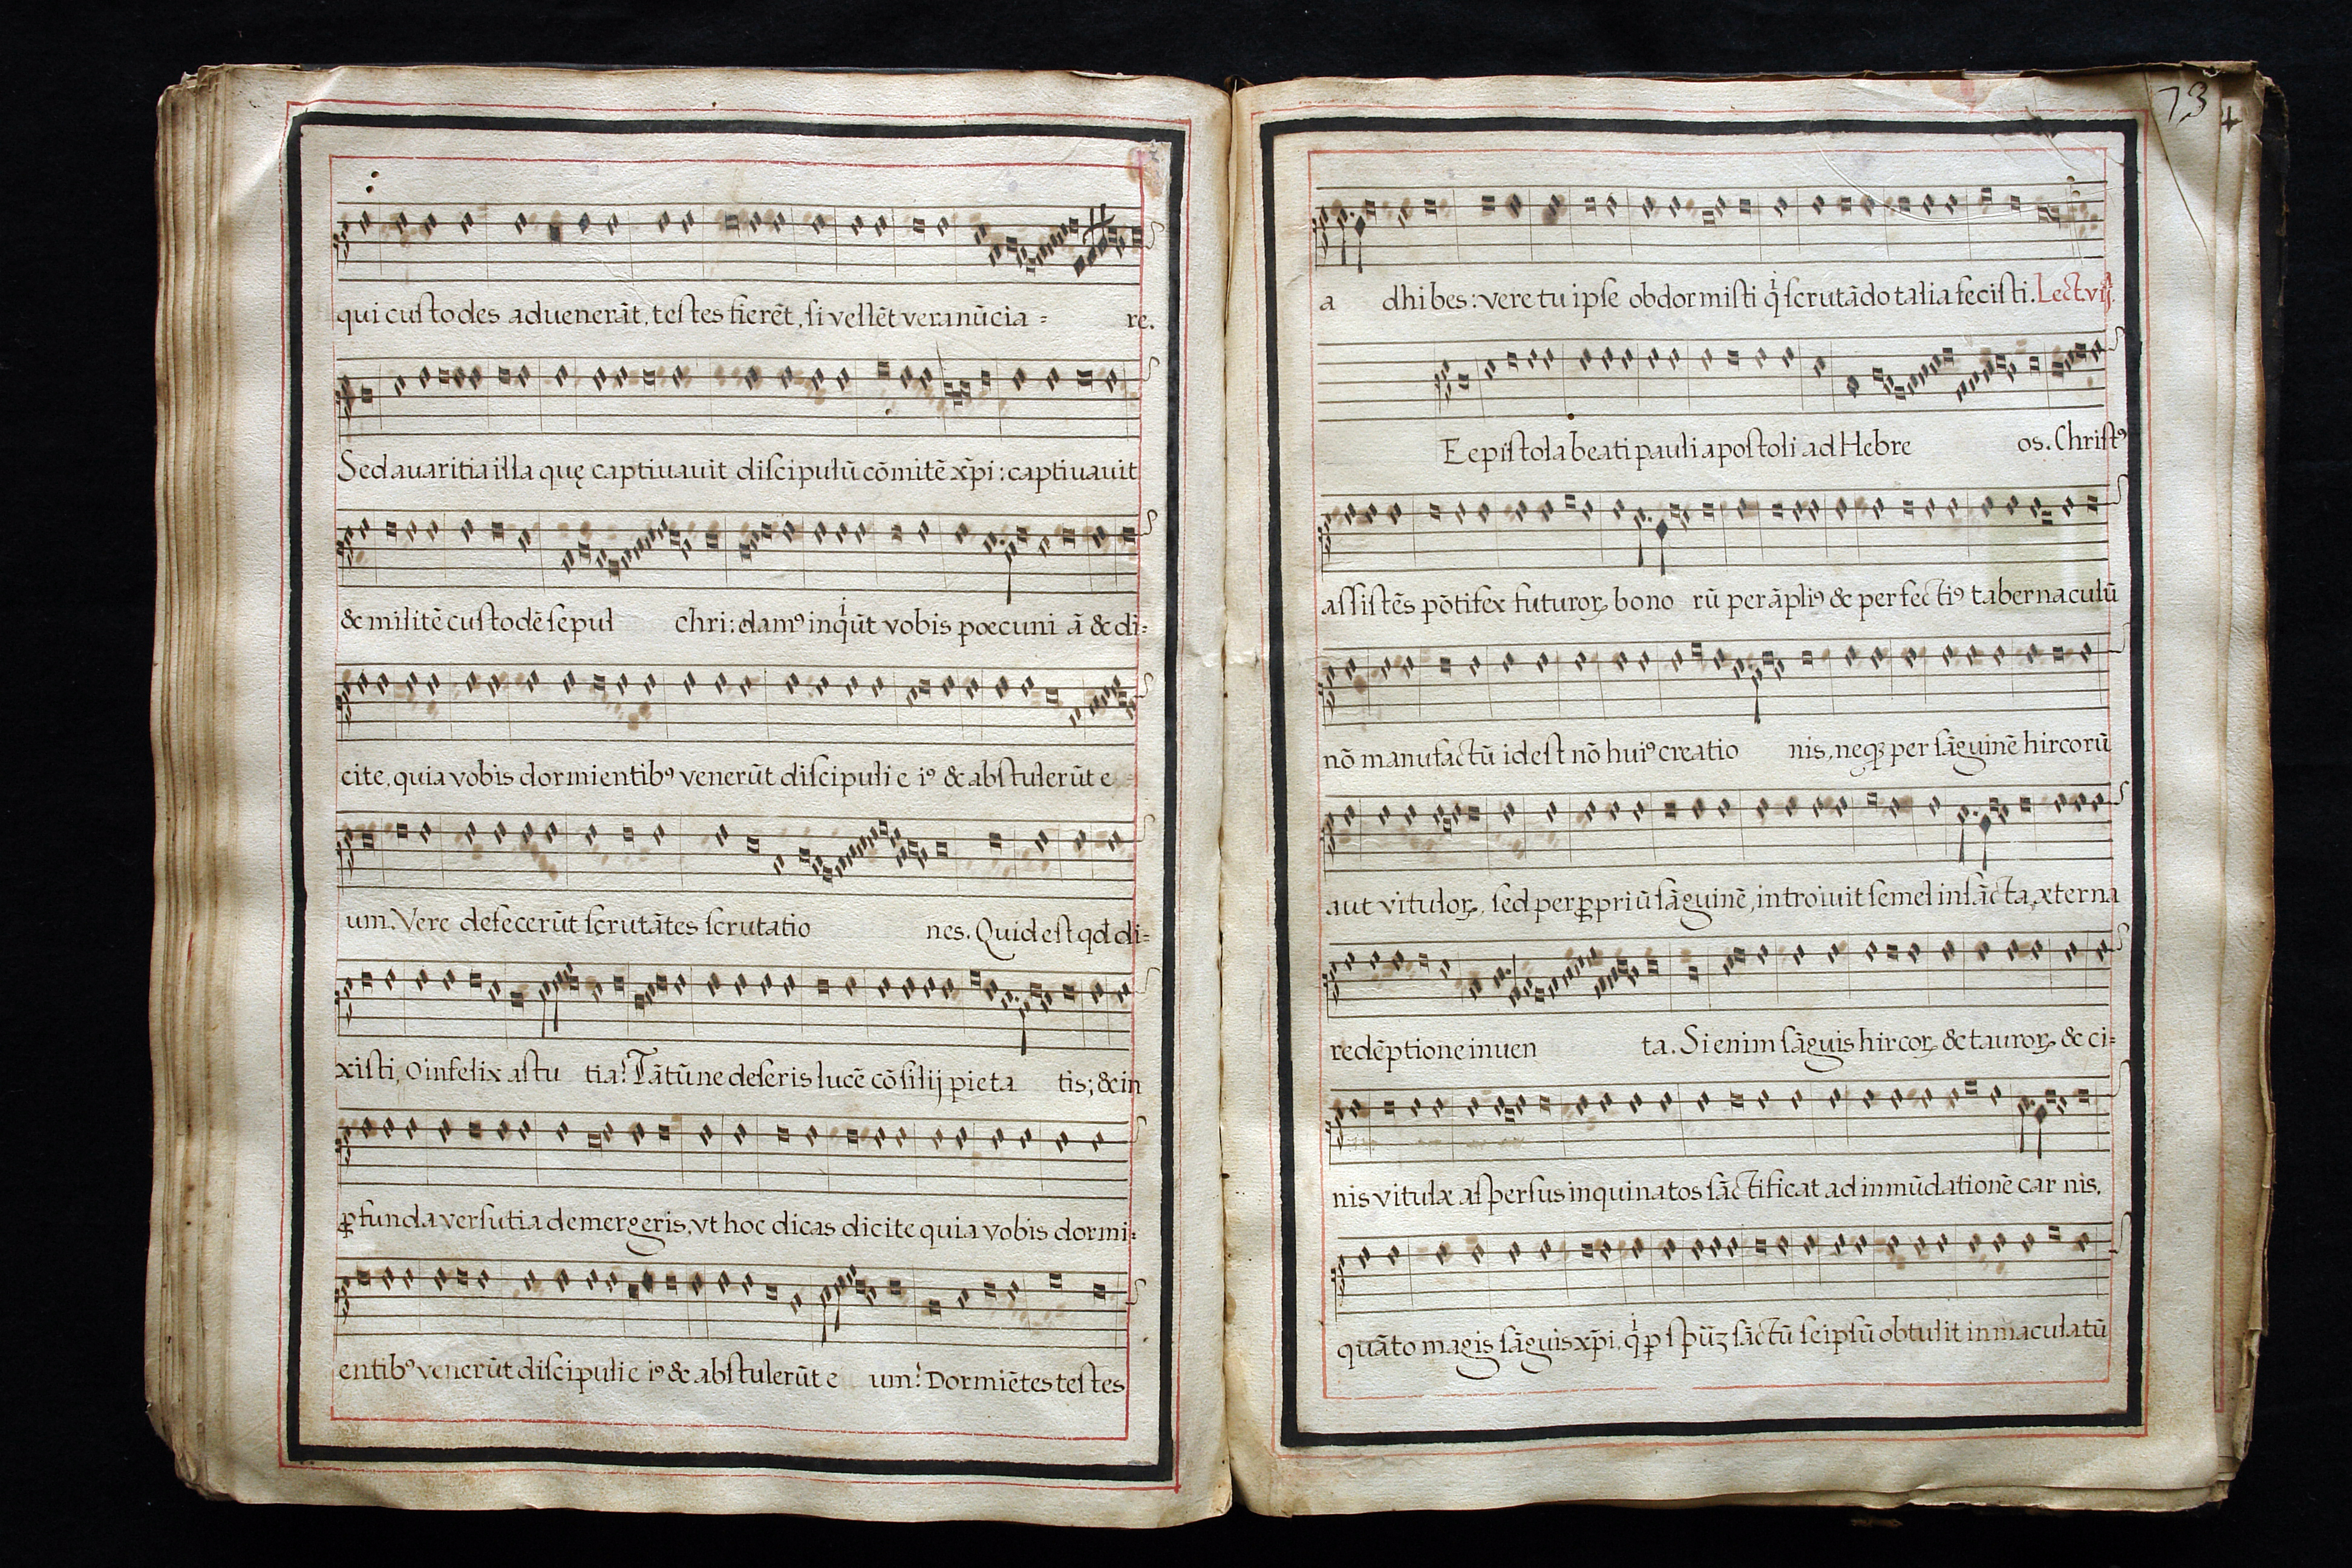 qui custodes aduenerāt, testes fierēt, si vellēt vera nūcia = re.
Sed avaritia illa quę captivavit discipulū cōmitē xp̄i : captivavit
& militē custodē sepul chri : damꝰ inqͥūt vobis pœcuni ā & di=
cite, quia vobis dormientibꝰ venerūt discipuli e iꝰ & abstulerūt e =
um. Vere defecerūt scrutātes scrutatio nes. Quid est qd di=
xisti, o infelix astu tia? Tātūne deseris lucē cōsilij pieta tis; & in
ꝓfunda versutia demergeris, vt hoc dicas dicite quia vobis dormi=
entibꝰ venerūt discipuli e iꝰ & abstulerūt e um? Dormiētes testes
73
a dhibes : vere tu ipse obdormisti qͥ scrutādo talia fecisti. Lect. vij.
E epistola beati pauli apostoli ad Hebre os. Christꝰ
assistēs pōtifex futuroꝝ bono rū per āpliꝰ & perfectiꝰ tabernaculū
nō manufactū id est nō huiꝰ creatio nis, neqꝫ per sāguinē hircorū
aut vituloꝝ, sed per ꝓpriū sāguinē, introiuit semel in sācta, æterna
redēptione inuen ta. Si enim sāguis hircoꝝ & tauroꝝ & ci=
nis vitulæ aspersus inquinatos sāctificat ad inmūdationē car nis.
quāto magis sāguis xp̄i, qͥ ꝑ spūꝫ sāctū seipsū obtulit inmaculatū